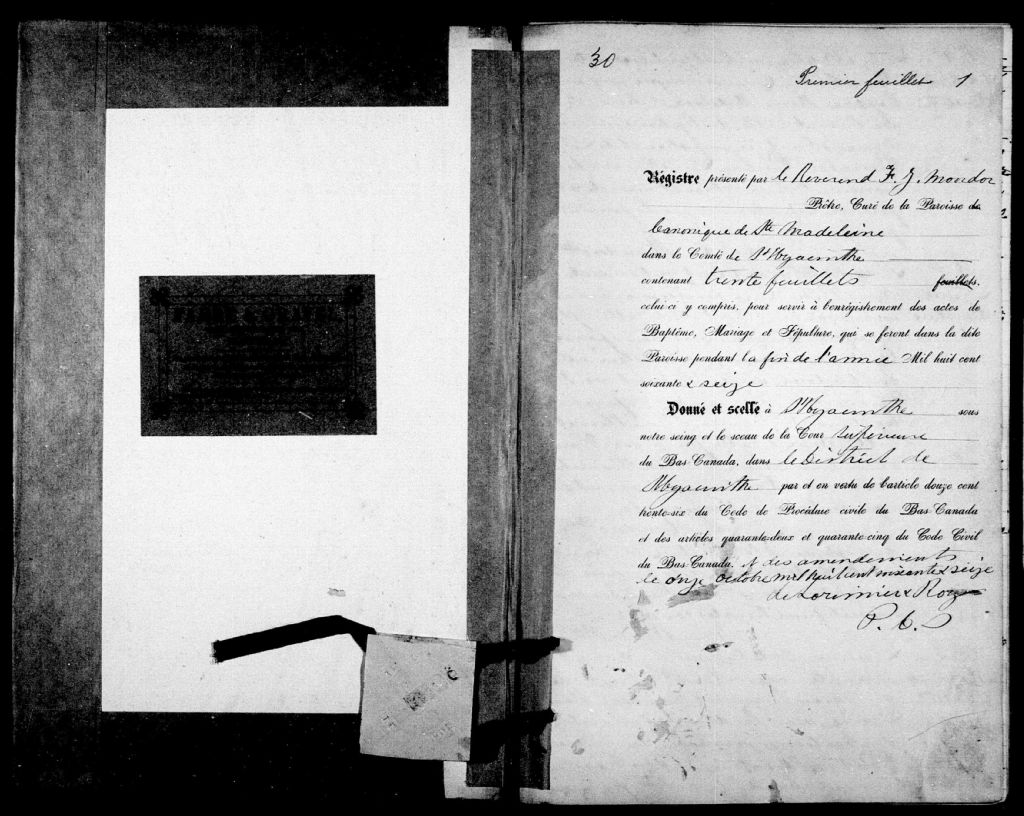 30
Premier feuillet 1
Régistre présenté par le Reverend F. J. Mondor
Prêtre, Curé de la Paroisse de
Canonique de Ste Madeleine
dans le Comté de St Hyacinthe
contenant trente feuillets feuillets,
celui-ci y compris, pour servir à l'enrégistrement des actes de
Baptême, Mariage et Sépulture, qui se feront dans la dite
Paroisse pendant la fin de l'année Mil huit cent
soixante & seize
Donné et scellé à St Hyacinthe sous
notre seing et le sceau de la Cour Supérieure
du Bas-Canada, dans le District de
St Hyacinthe par et en vertu de l'article douze cent
trente-six du Code de Procédure civile du Bas-Canada
et des articles quarante-deux et quarante-cinq du Code Civil
du Bas-Canada. & des amendements
le onze octobre mil huit cent soixante & seize
de Lorimier & Roy
P. C. S